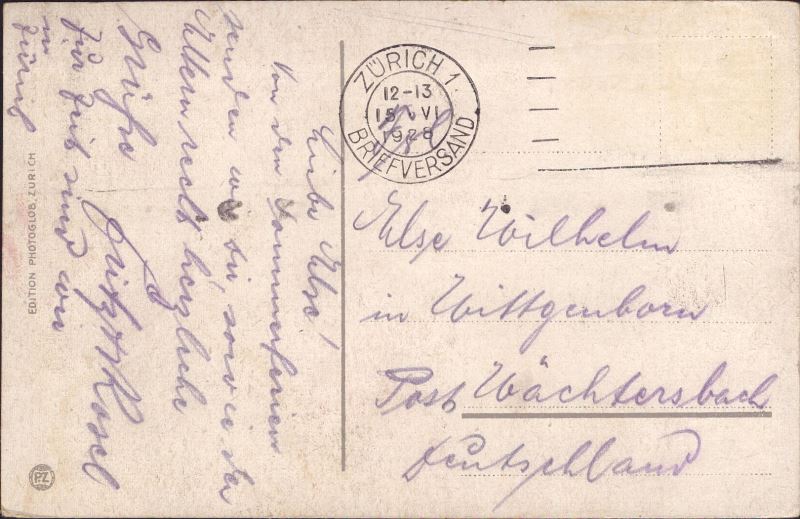 Liebe Else!
Von den Sommerferien
senden wir Dir, sowie den
Eltern recht herzliche
Grüße
Fritz & Rosel
Zur Zeit sind wir
in Zürich
EDITION PHOTOGLOB, ZÜRICH
PZ
ZÜRICH 1
12-13
VI
1928
BRIEFVERSAND
Else Wilhelm
in Wittgenborn
Post Wächtersbach
Deutschland